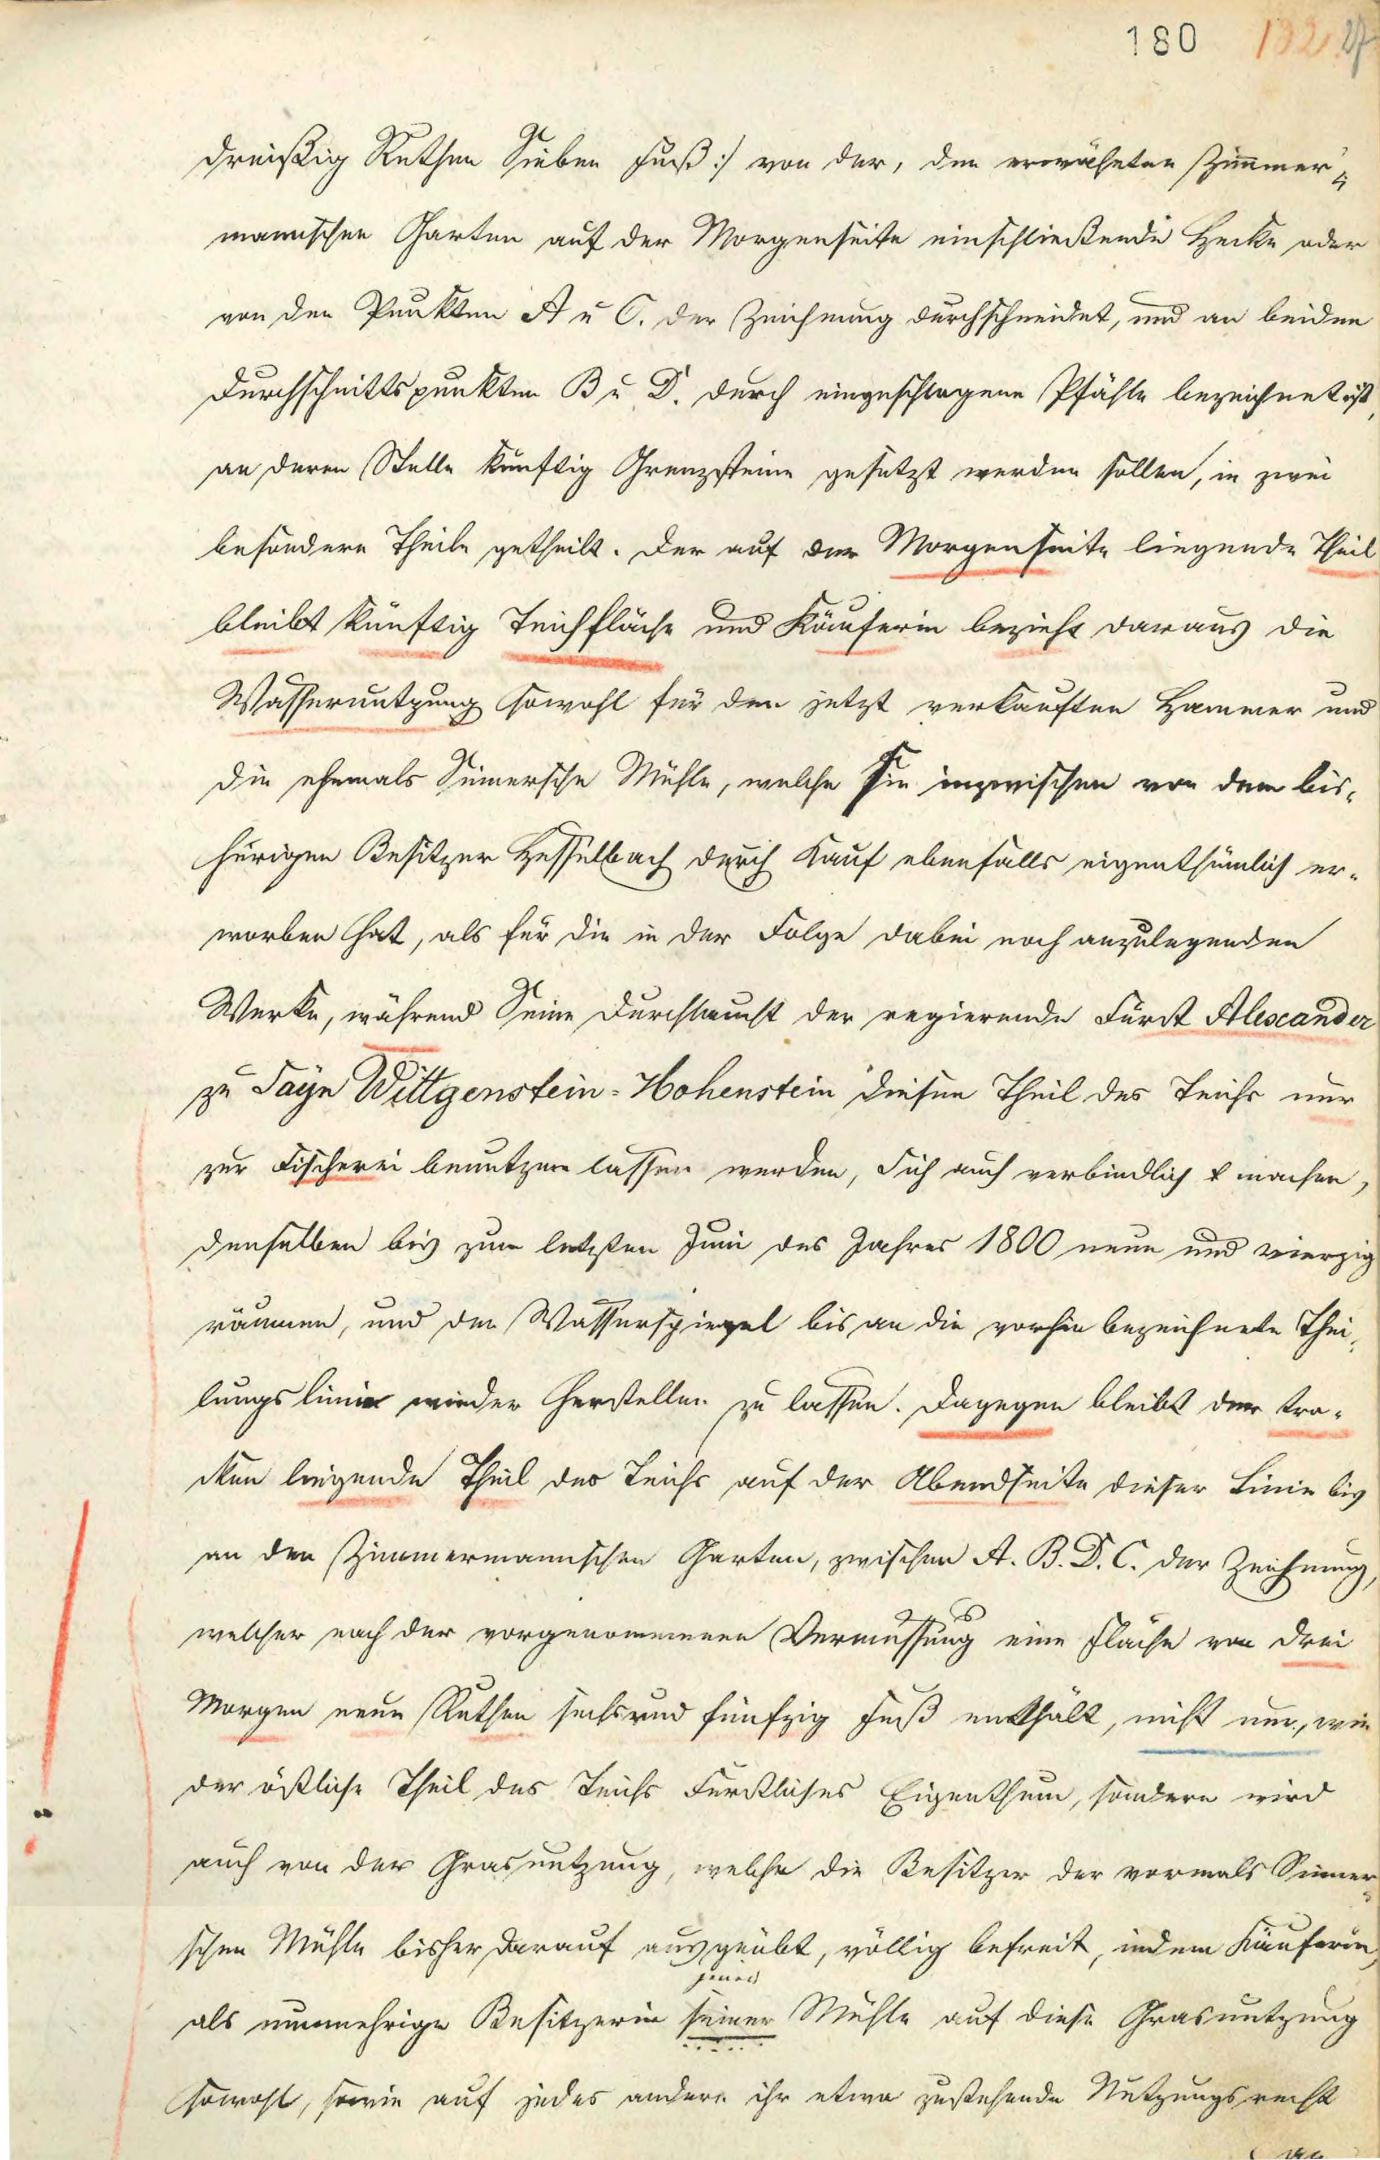 180 132 27
dreißig Ruthen Sieben Fuß :/ von der, den erwähnten Zimmer-
mannschen Garten auf der Morgenseite einschließende Hecke oder
von den Punkten A u C. der Zeichnung durchschneidet, und an beiden
Durchschnittspunkten B u D. durch eingeschlagene Pfähle bezeichnet ist,
an deren Stelle künftig Grenzsteine gesetzt werden sollen, in zwei
besondere Theile getheilt. Der auf der Morgenseite liegende Theil
bleibt künftig Teichfläche und Käuferin bezieht daraus die
Wassernutzung sowohl für den jetzt verkauften Hammer und
die ehemals Simersche Mühle, welche Sie inzwischen von dem bis-
herigen Besitzer Hesselbach durch Kauf ebenfalls eigenthümlich er-
worben hat, als für die in der Folge dabei noch anzulegenden
Werke, während Seine Durchlaucht der regierende Fürst Alexander
zu Sayn Wittgenstein-Hohenstein diesen Theil des Teichs nur
zur Fischerei benutzen lassen werden, Sich auch verbindlich machen,
denselben bis zum letzten Juni des Jahres 1800 neun und vierzig
räumen, und den Wasserspiegel bis an die vorhin bezeichnete Thei-
lungslinie wieder herstellen zu lassen. Dagegen bleibt der tro-
cken liegende Theil des Teichs auf der Abendseite dieser Linie bis
an den Zimmermannschen Garten, zwischen A. B. D. C. der Zeichnung,
welcher nach der vorgenommenen Vermessung eine Fläche von drei
Morgen neun Ruthen sechsund fünfzig Fuß enthält, nicht nur, wie
der östliche Theil des Teichs Fürstliches Eigenthum, sondern wird
auch von der Grasnutzung, welche die Besitzer der vormals Simer-
schen Mühle bisher darauf ausgeübt, völlig befreit, indem Käuferin,
jener
als nunmehrige Besitzerin seiner Mühle auf diese Grasnutzung
sowohl, sowie auf jedes andere ihr etwa zustehende Nutzungsrecht